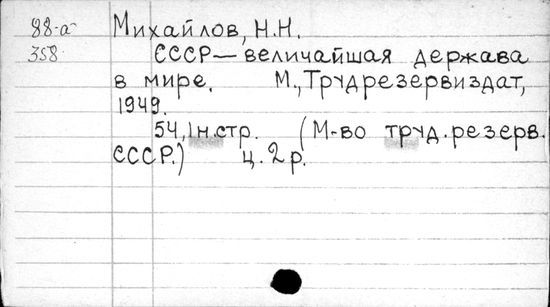 88-а Михайлов, Н.Н.
358 СССР — величайшая держава
в мире. М., Трудрезервиздат,
1949.
54, 1 н.стр. (М-во труд. резерв.
СССР.) ц. 2 р.